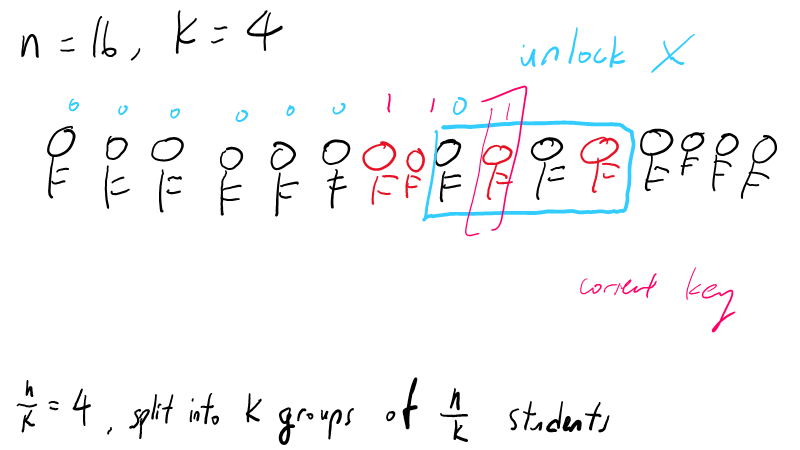 n = 16, k = 4
unlock X
0 0 0 0 0 0 1 1 0 1
key
n/k = 4, split into k groups of n/k students